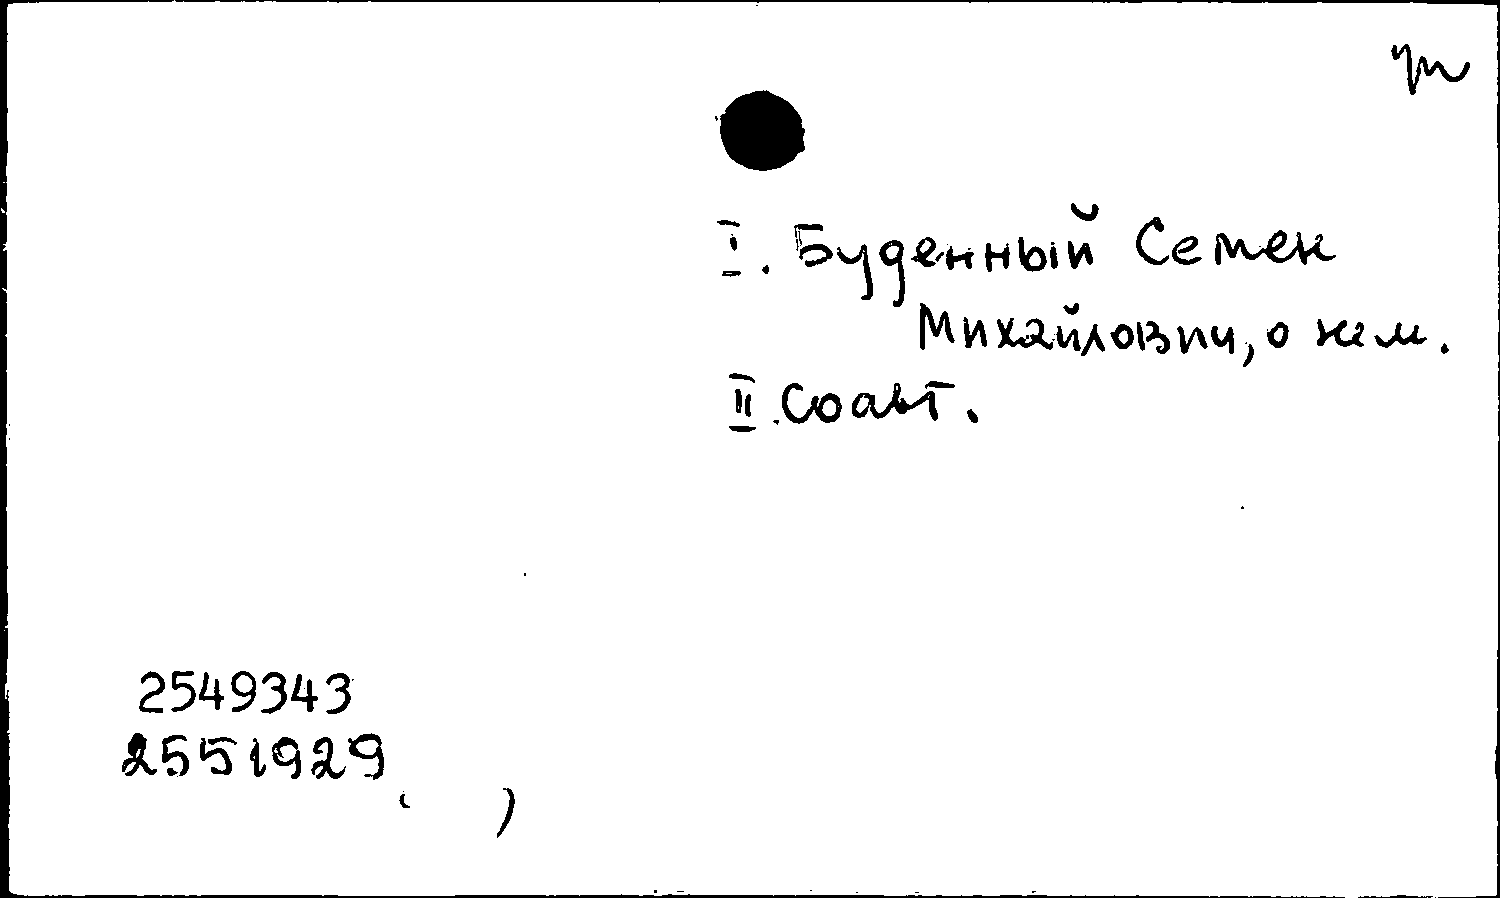 I. Буденный Семен
Михайлович, о нем.
II. Соавт.
2549343
2551929